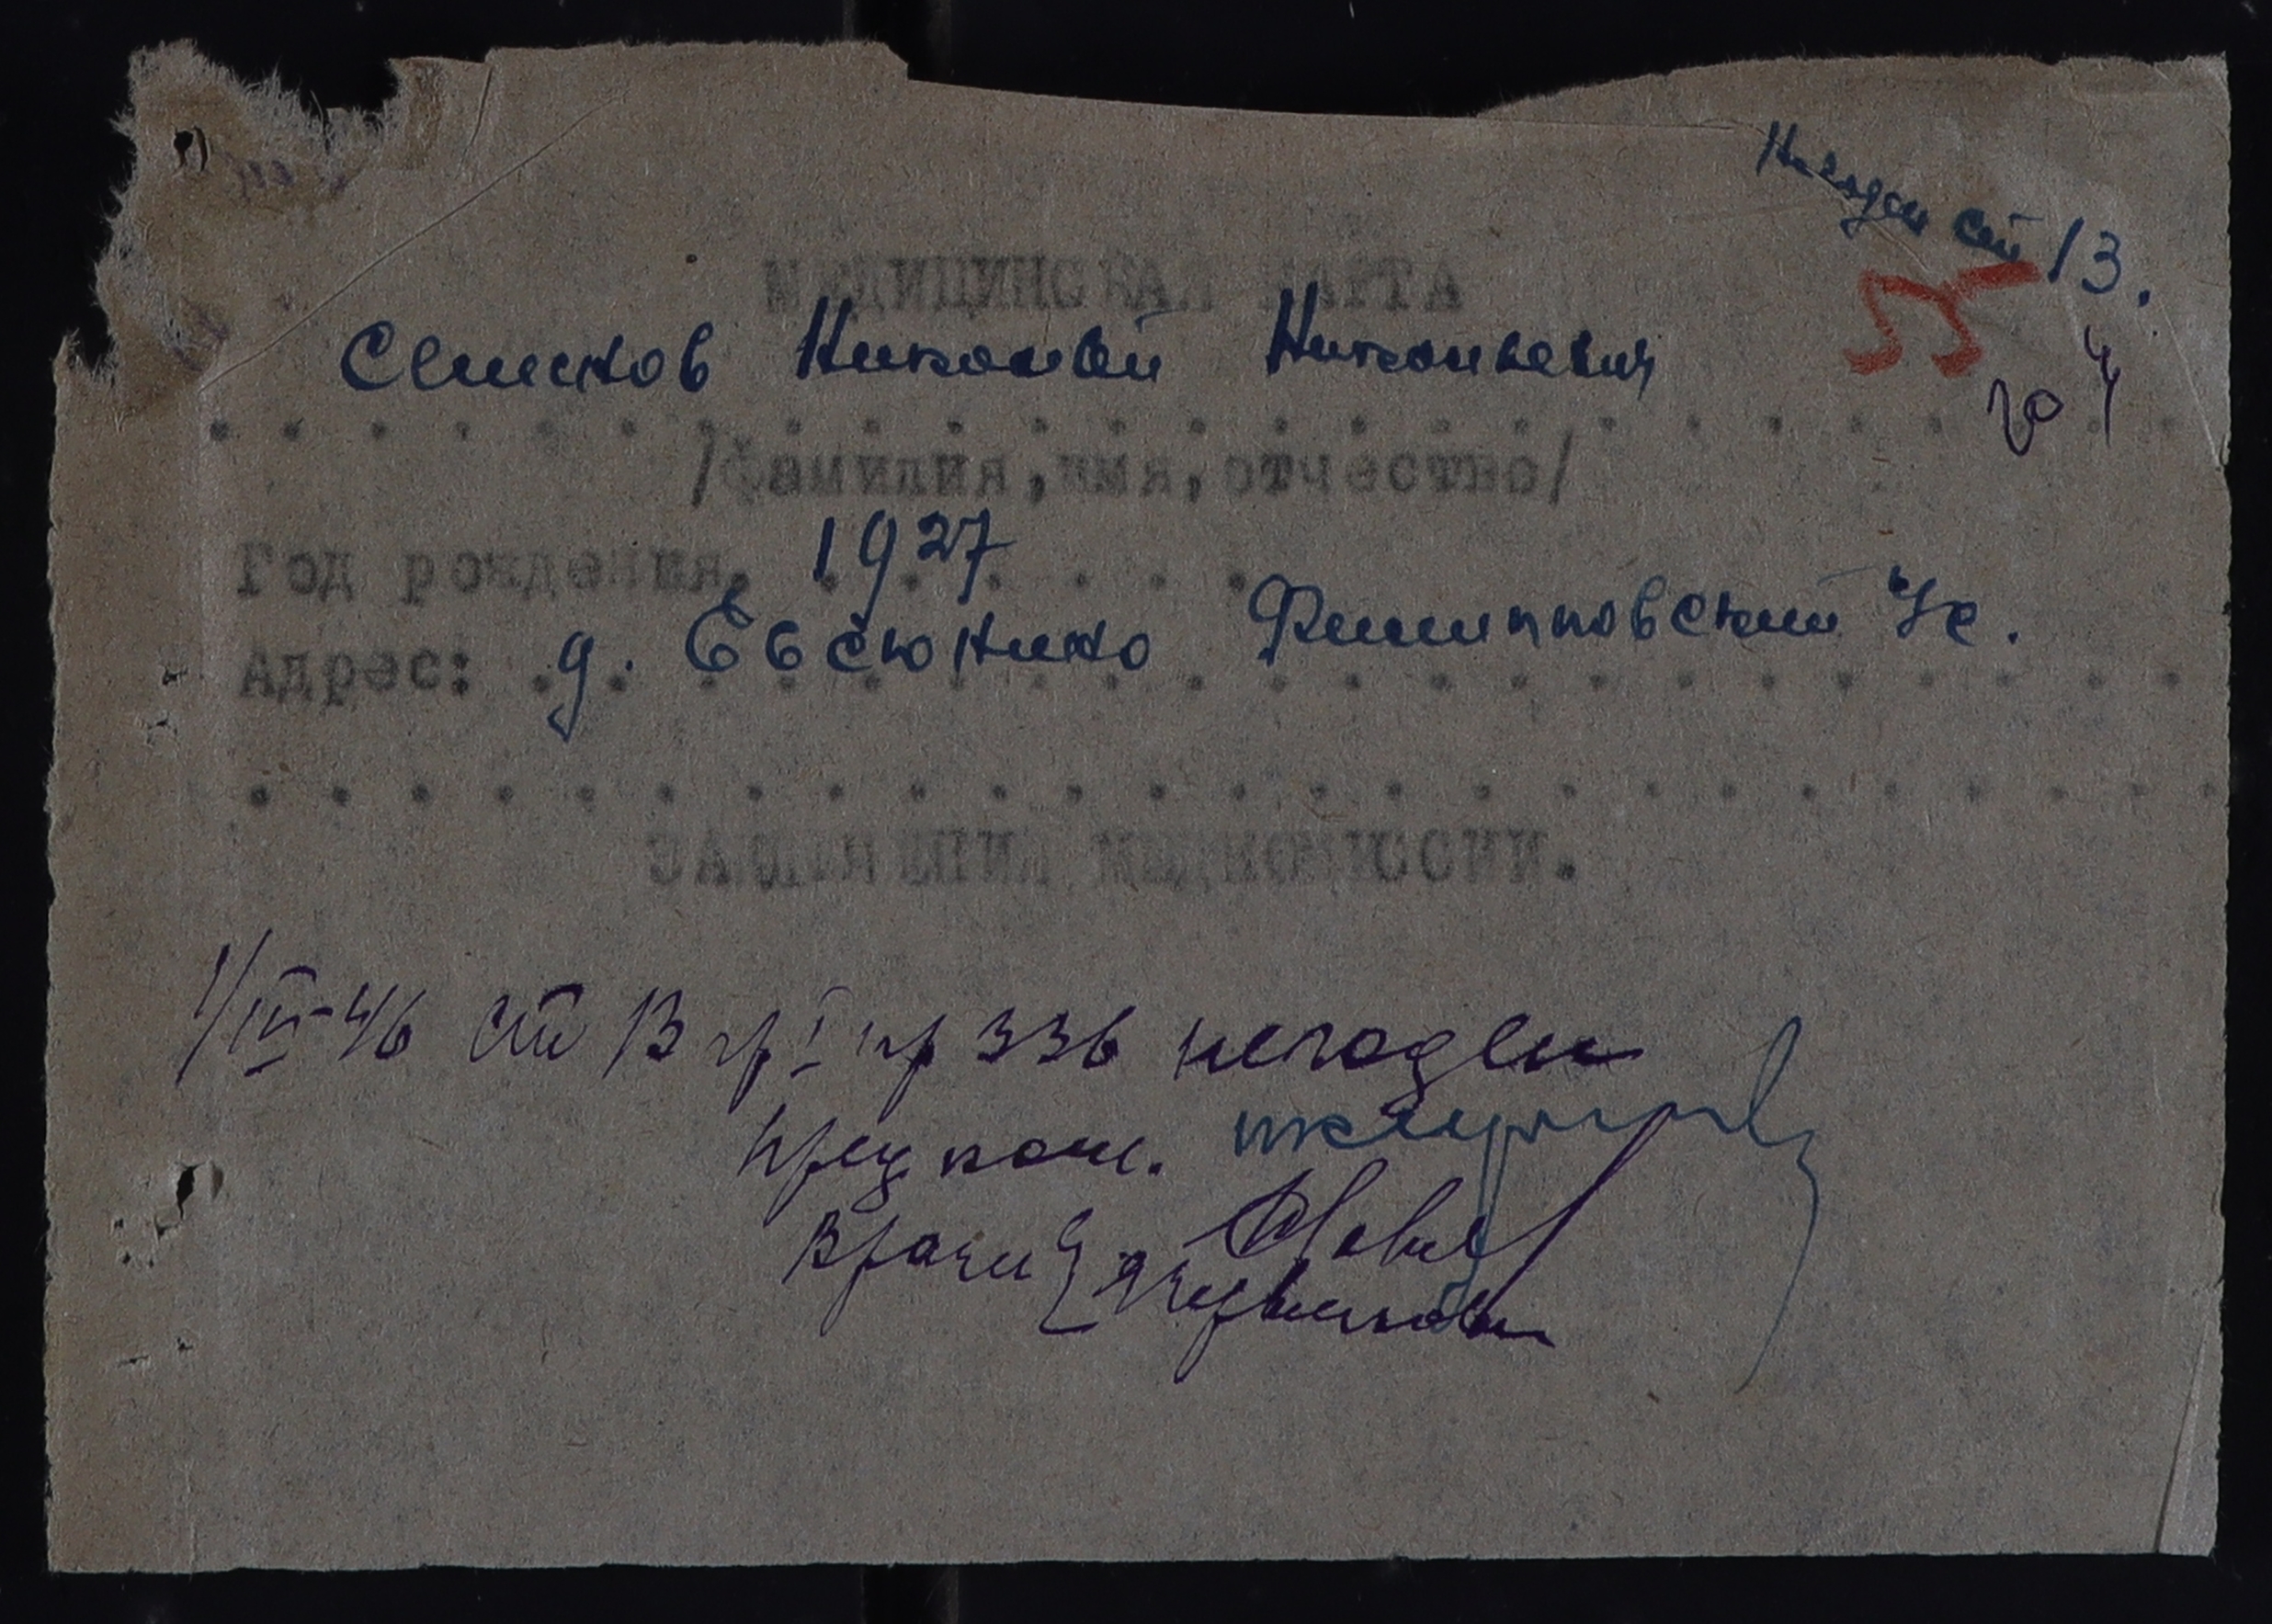 Негоден ст 13.
МЕДИЦИНСКАЯ КАРТА
55
Николай Николаевич
/фамилия,имя,отчество/
Год рождения. 1927
Адрес: д. Евсюнино Филипповский ус.
ЗАКЛЮЧЕНИЕ МЕДКОМИССИИ.
1/III-46 ст 13 гр I пр 336 негоден
Пред ком.
Врачи